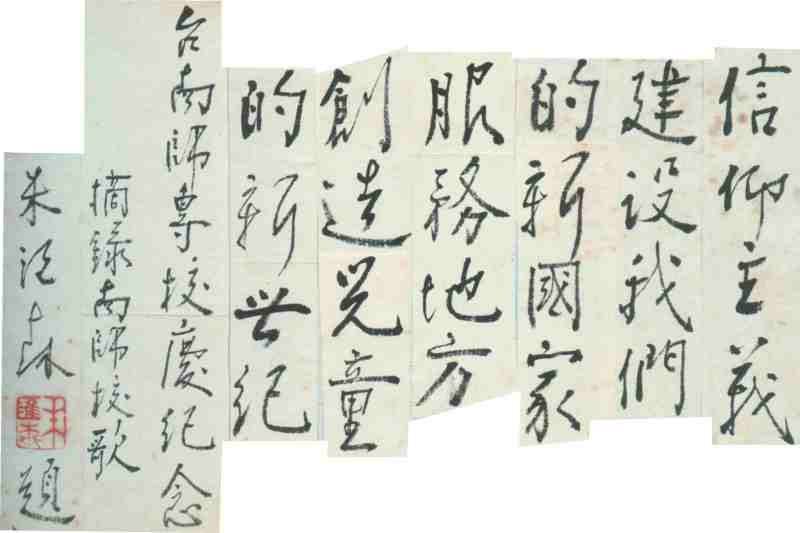 信仰主義
建設我們
的新國家
服務地方
創造兒童
的新世紀
台南師專校慶紀念
摘錄南師校歌
朱匯森題
朱匯森